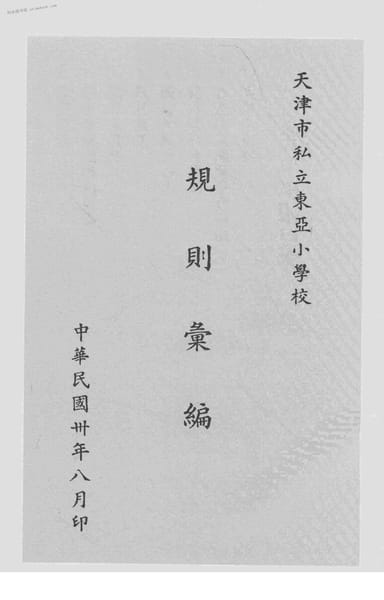 天津市私立東亞小學校
規則彙編
中華民國卅年八月印